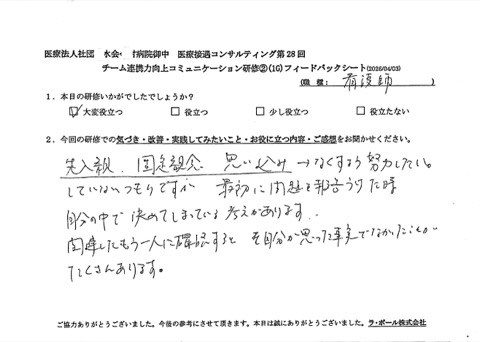 医療法人社団 水会 病院御中 医療接遇コンサルティング第28回
チーム連携力向上コミュニケーション研修②(1G)フィードバックシート(2026/04/03)
(職 種: 看護師 )
1.本日の研修いかがでしたでしょうか?
☑大変役立つ □役立つ □少し役立つ □役立たない
2.今回の研修での気づき・改善・実践してみたいこと・お役に立つ内容・ご感想をお聞かせください。
先入観、固定観念 思い込み→なくすよう努力したい。
していないつもりですが 最初に問題を報告うけた時
自分の中で決めてしまっている考えがあります。
関連したもう一人に確認すると 自分が思った事実でなかったことが
たくさんあります。
ご協力ありがとうございました。今後の参考にさせて頂きます。本日は誠にありがとうございました。ラ・ポール株式会社